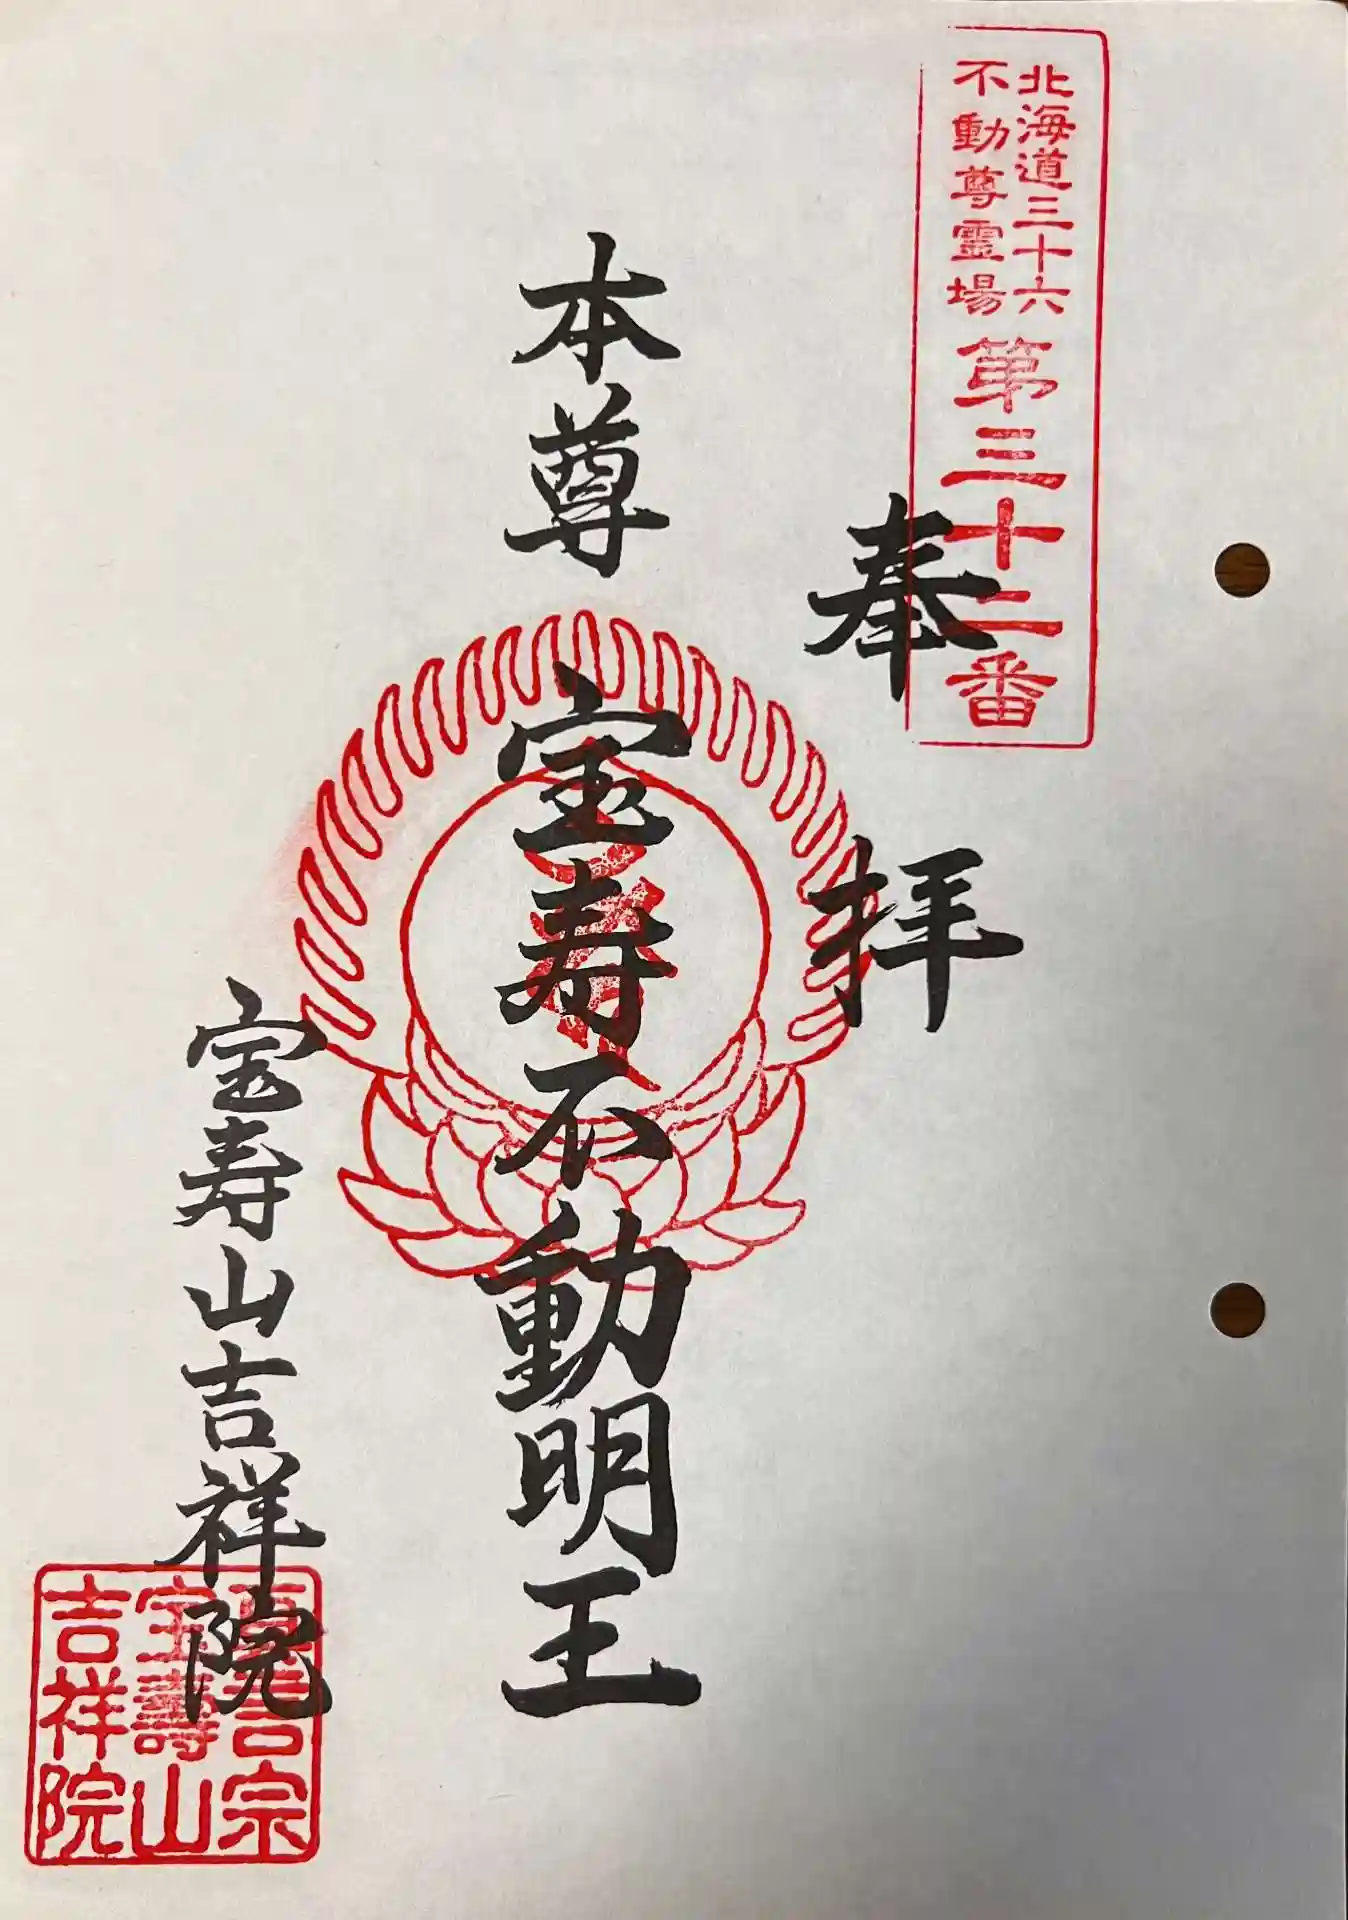 北海道三十六
不動尊霊場
第三十二番
奉拝
本尊 宝寿不動明王
宝寿山吉祥院
真言宗
宝壽山
吉祥院